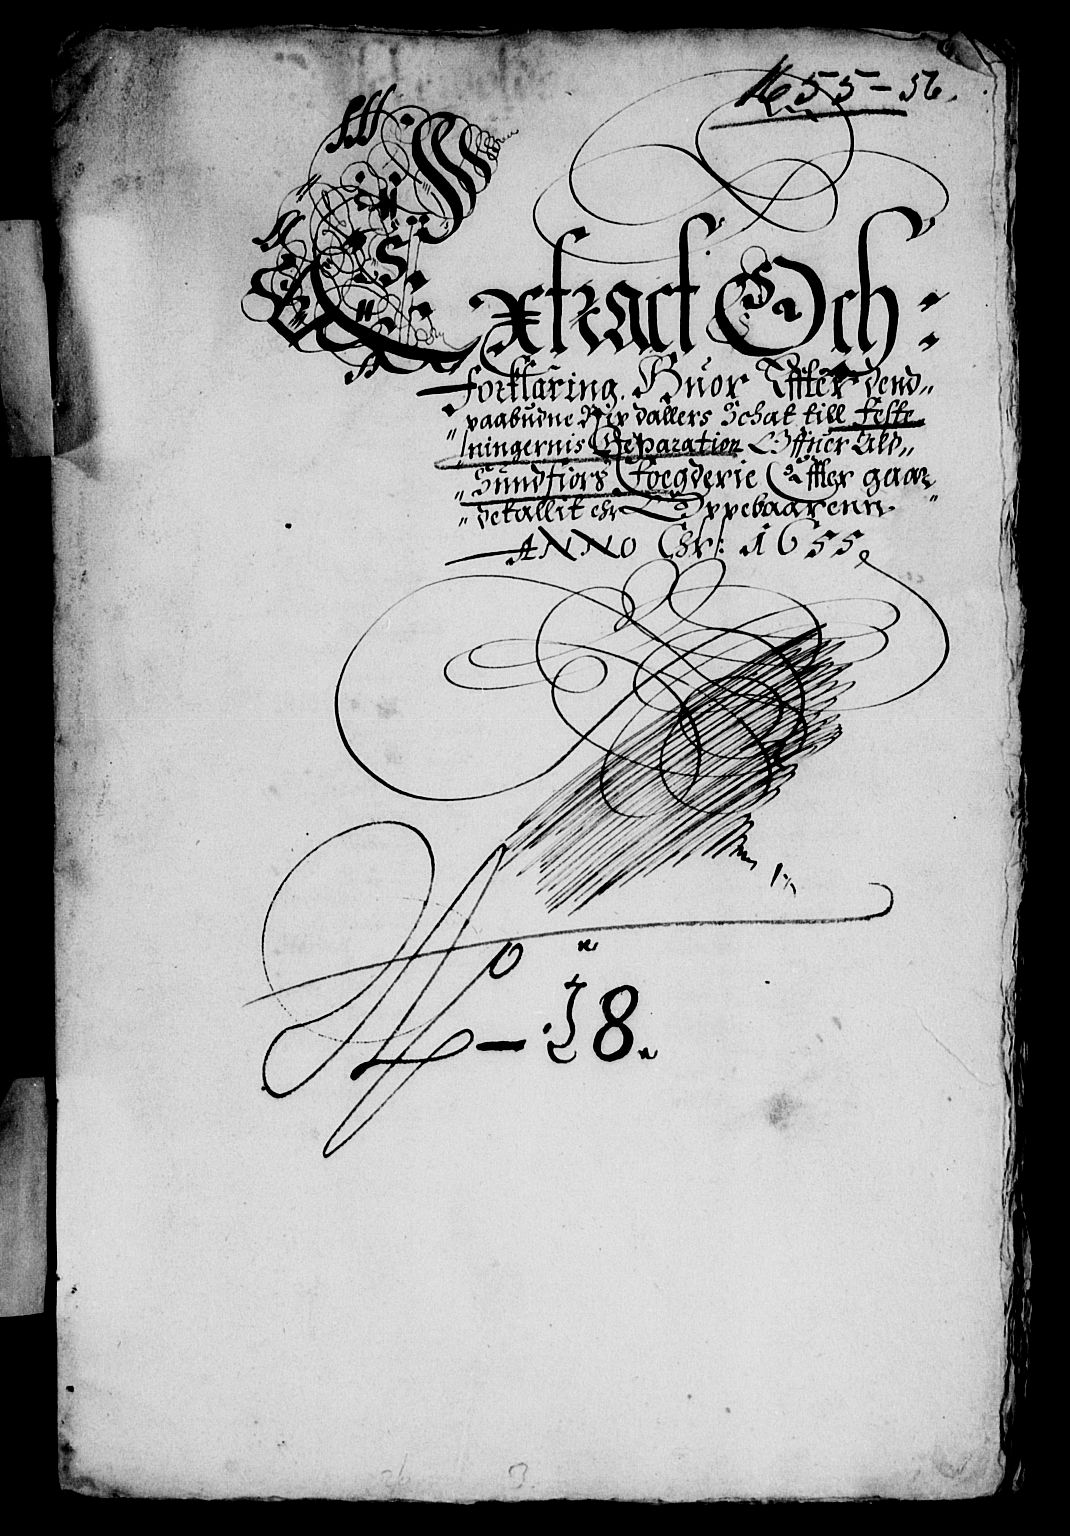 1655-56.
Extract Och:
forklaring. Huor Effter dend„
paabudne Rix dallers Schat till Feste
„ningernis Reparation Offuer Alt„
„Sundfiors Foegderie Effter gaar„
„detallit ehr Oppebaarenn.
ANNO Chr: 1655.
N – 18.